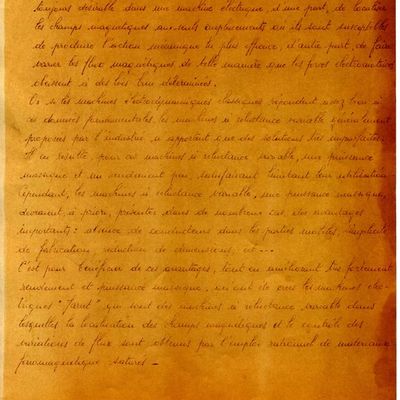 toujours désirable dans une machine électrique, d'une part, de localiser
les champs magnétiques aux seuls emplacements où ils sont susceptibles
de produire l'action mécanique la plus efficace, d'autre part, de faire
varier les flux magnétiques de telle manière que les forces électromotrices
obéissent à des lois bien déterminées.
Or si les machines électrodynamiques classiques répondent assez bien à
ces données fondamentales, les machines à réluctance variable généralement
proposées par l'industrie n'apportent que des solutions très imparfaites.
Il en résulte, pour ces machines à réluctance variable, une puissance
massique et un rendement peu satisfaisant limitant leur utilisation
Cependant, les machines à réluctance variable, une puissance massique,
devraient, à priori, présenter dans de nombreux cas, des avantages
importants : absence de conducteurs dans les parties mobiles, simplicité
de fabrication, réduction de dimensions, etc...
C'est pour bénéficier de ces avantages, tout en améliorant très fortement
rendement et puissance massique, qu'ont été créées les machines élec-
triques "Jarret" qui sont des machines à réluctance variable dans
lesquelles la localisation des champs magnétiques et le contrôle des
variations de flux sont obtenus par l'emploi rationnel de matériaux
ferromagnétiques saturés -